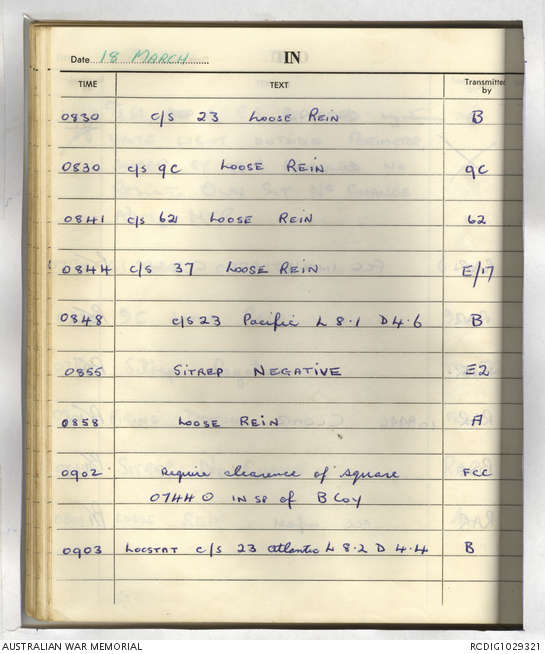 Date 18 MARCH IN
TIME TEXT Transmitted by
0830 c/s 23 LOOSE REIN B
0830 c/s 9C LOOSE REIN 9C
0841 c/s 62 LOOSE REIN 62
0844 c/s 37 LOOSE REIN E/17
0848 c/s 23 Pacific L 8.1 D 4.6 B
0855 SITREP NEGATIVE E2
0858 LOOSE REIN A
0902 Require clearence of square FCC
0744 0 IN SP of B Coy
0903 LOCSTAT c/s 23 atlantic L 8.2 D 4.4 B
AUSTRALIAN WAR MEMORIAL RCDIG1029321